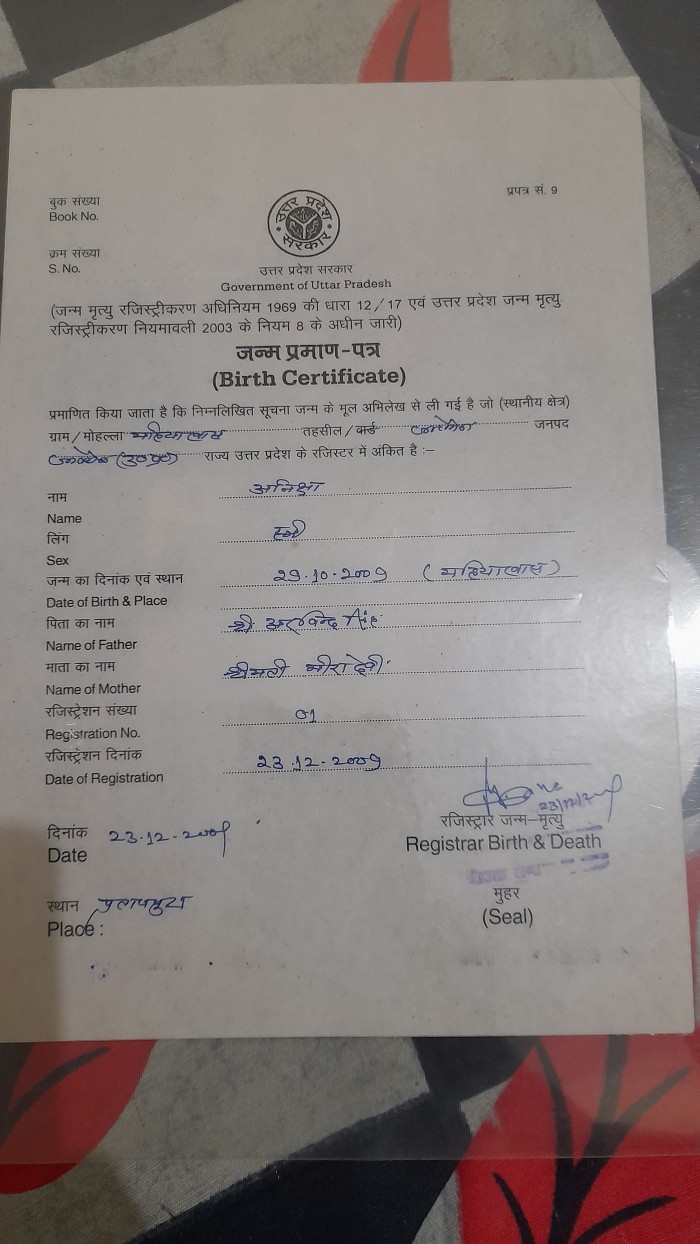 बुक संख्या
Book No.
प्रपत्र सं. 9
उत्तर प्रदेश
सरकार
क्रम संख्या
S. No.
उत्तर प्रदेश सरकार
Government of Uttar Pradesh
(जन्म मृत्यु रजिस्ट्रीकरण अधिनियम 1969 की धारा 12/17 एवं उत्तर प्रदेश जन्म मृत्यु
रजिस्ट्रीकरण नियमावली 2003 के नियम 8 के अधीन जारी)
जन्म प्रमाण-पत्र
(Birth Certificate)
प्रमाणित किया जाता है कि निम्नलिखित सूचना जन्म के मूल अभिलेख से ली गई है जो (स्थानीय क्षेत्र)
ग्राम/मोहल्ला तहसील/वार्ड जनपद
(उ०प्र०) राज्य उत्तर प्रदेश के रजिस्टर में अंकित है :–
नाम अनिक्षा
Name
लिंग स्त्री
Sex
जन्म का दिनांक एवं स्थान 29.10.2009
Date of Birth & Place
पिता का नाम श्री अरविन्द सिंह
Name of Father
माता का नाम श्रीमती मीरा देवी
Name of Mother
रजिस्ट्रेशन संख्या 01
Registration No.
रजिस्ट्रेशन दिनांक 23.12.2009
Date of Registration
23/12/2009
रजिस्ट्रार जन्म–मृत्यु
दिनांक 23.12.2009
Registrar Birth & Death
Date
मुहर
स्थान
(Seal)
Place :